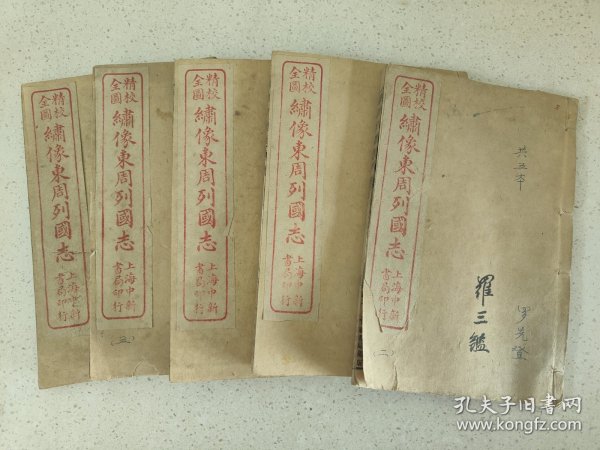 精校
全圖
繡像東周列國志
上海中新
書局印行
精校
全圖
繡像東周列國志
上海中新
書局印行
精校
全圖
繡像東周列國志
上海中新
書局印行
精校
全圖
繡像東周列國志
上海中新
書局印行
精校
全圖
繡像東周列國志
上海中新
書局印行
(二)
共五本
羅三鑑
罗先登
孔夫子旧书网
www.kongfz.com